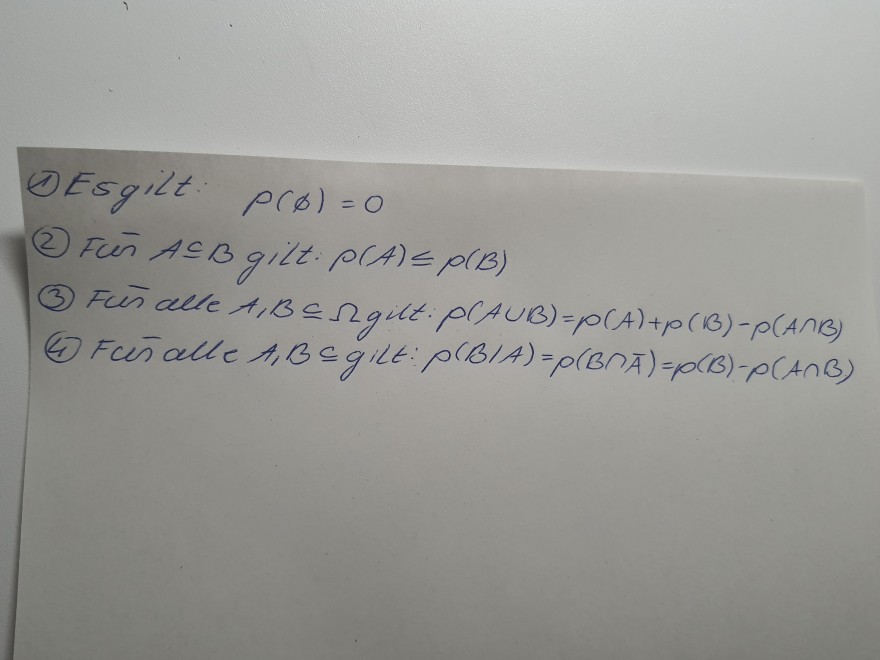 ① Es gilt: p(∅) = 0
② Für A⊆B gilt: p(A) ≤ p(B)
③ Für alle A,B ⊆ Ω gilt: p(A∪B)=p(A)+p(B)-p(A∩B)
④ Für alle A,B ⊆ gilt: p(B/A)=p(B∩Ā)=p(B)-p(A∩B)